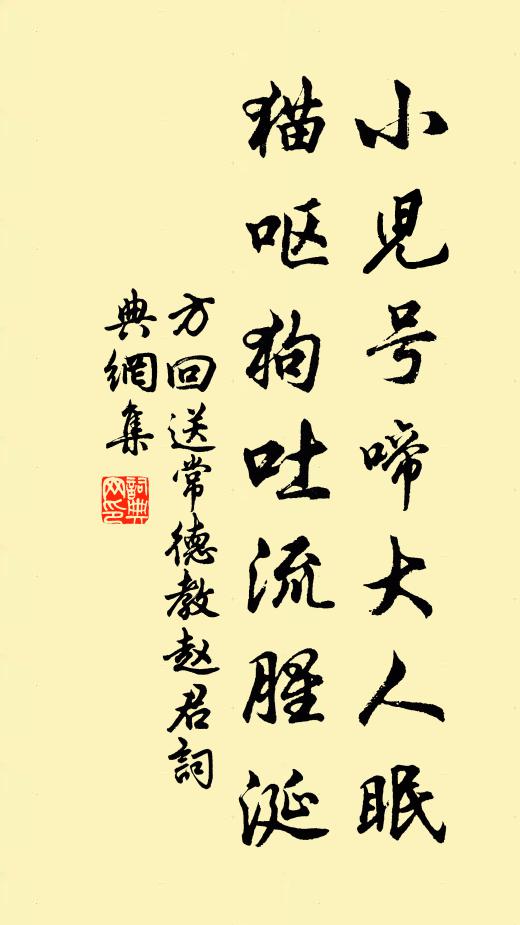 小児号啼大人眠
猫呕狗吐流腥涎
方回送常德教赵君詞
典網集
詞典网印